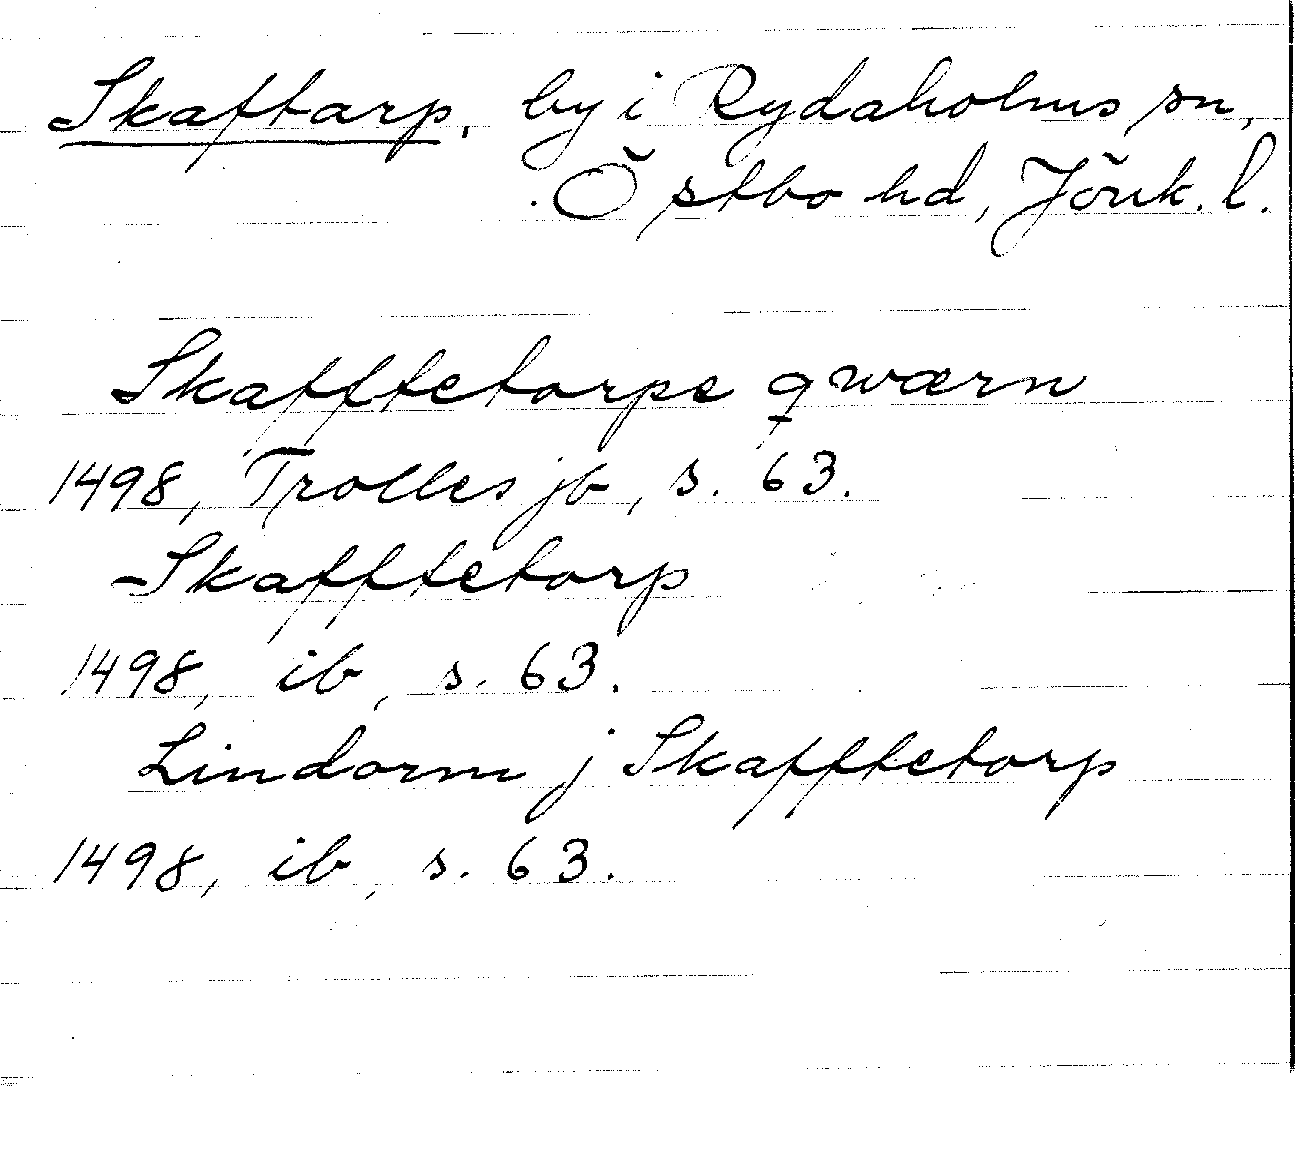 Skaftarp, by i Rydaholms sn,
Östbo hd, Jönk. l.
Skafftetorps qwærn
1498, Trolles jb, s. 63.
Skafftetorp
1498, ib, s. 63.
Lindorm j Skafftetorp
1498, ib, s. 63.